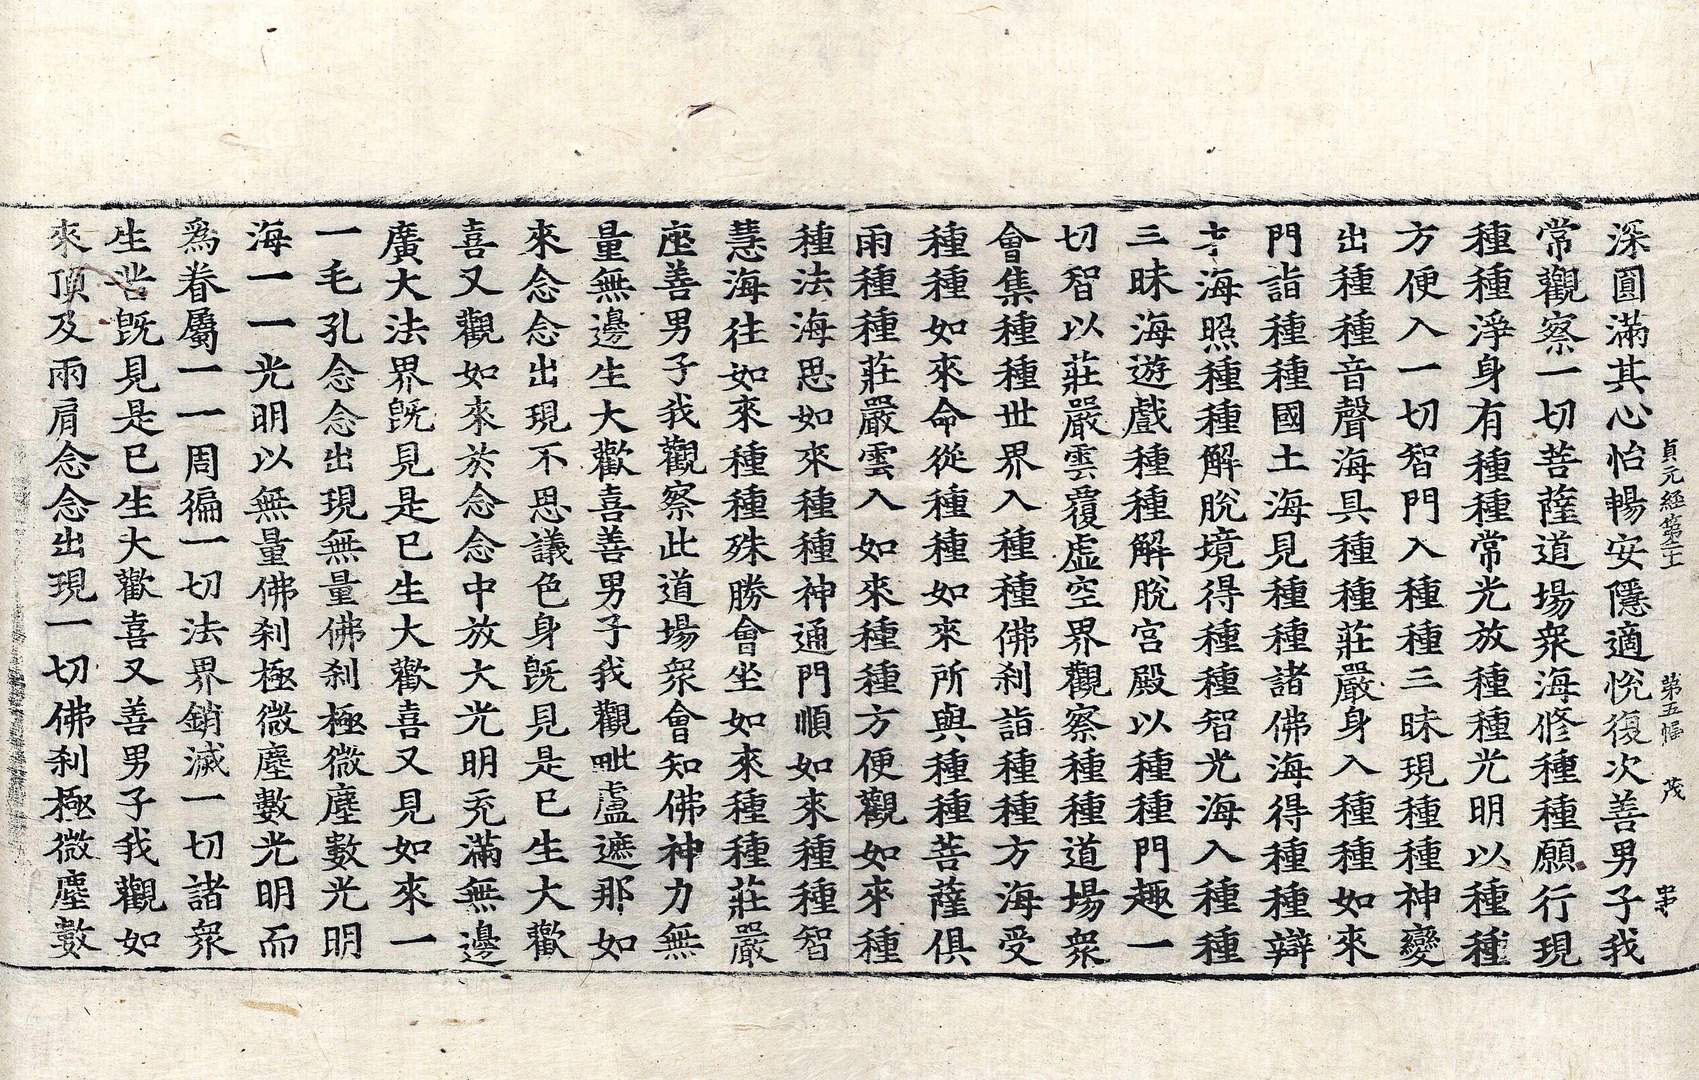 貞元經第 第五幅 茂
深圓滿其心怡暢安隱適悅復次善男子我
常觀察一切菩薩道場衆海修種種願行現
種種淨身有種種常光放種種光明以種種
方便入一切智門入種種三昧現種種神變
出種種音聲海具種種莊嚴身入種種如來
門詣種種國土海見種種諸佛海得種種辯
才海照種種解脫境得種種智光海入種種
三昧海遊戲種種解脫宮殿以種種門趣一
切智以莊嚴雲覆虛空界觀察種種道場衆
會集種種世界入種種佛刹詣種種方海受
種種如來命從種種如來所與種種菩薩俱
雨種種莊嚴雲入如來種種方便觀如來種
種法海思如來種種神通門順如來種種智
慧海往如來種種殊勝會坐如來種種莊嚴
座善男子我觀察此道場衆會知佛神力無
量無邊生大歡喜善男子我觀毗盧遮那如
來念念出現不思議色身旣見是已生大歡
喜又觀如來於念念中放大光明充滿無邊
廣大法界旣見是已生大歡喜又見如來一
一毛孔念念出現無量佛刹極微塵數光明
海一一光明以無量佛刹極微塵數光明而
爲眷屬一一周徧一切法界銷滅一切諸衆
生苦旣見是已生大歡喜又善男子我觀如
來頂及兩肩念念出現一切佛刹極微塵數